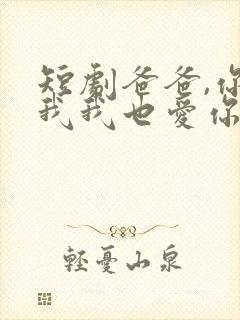 短劇爸爸,你
我我也愛你
輕憂山泉